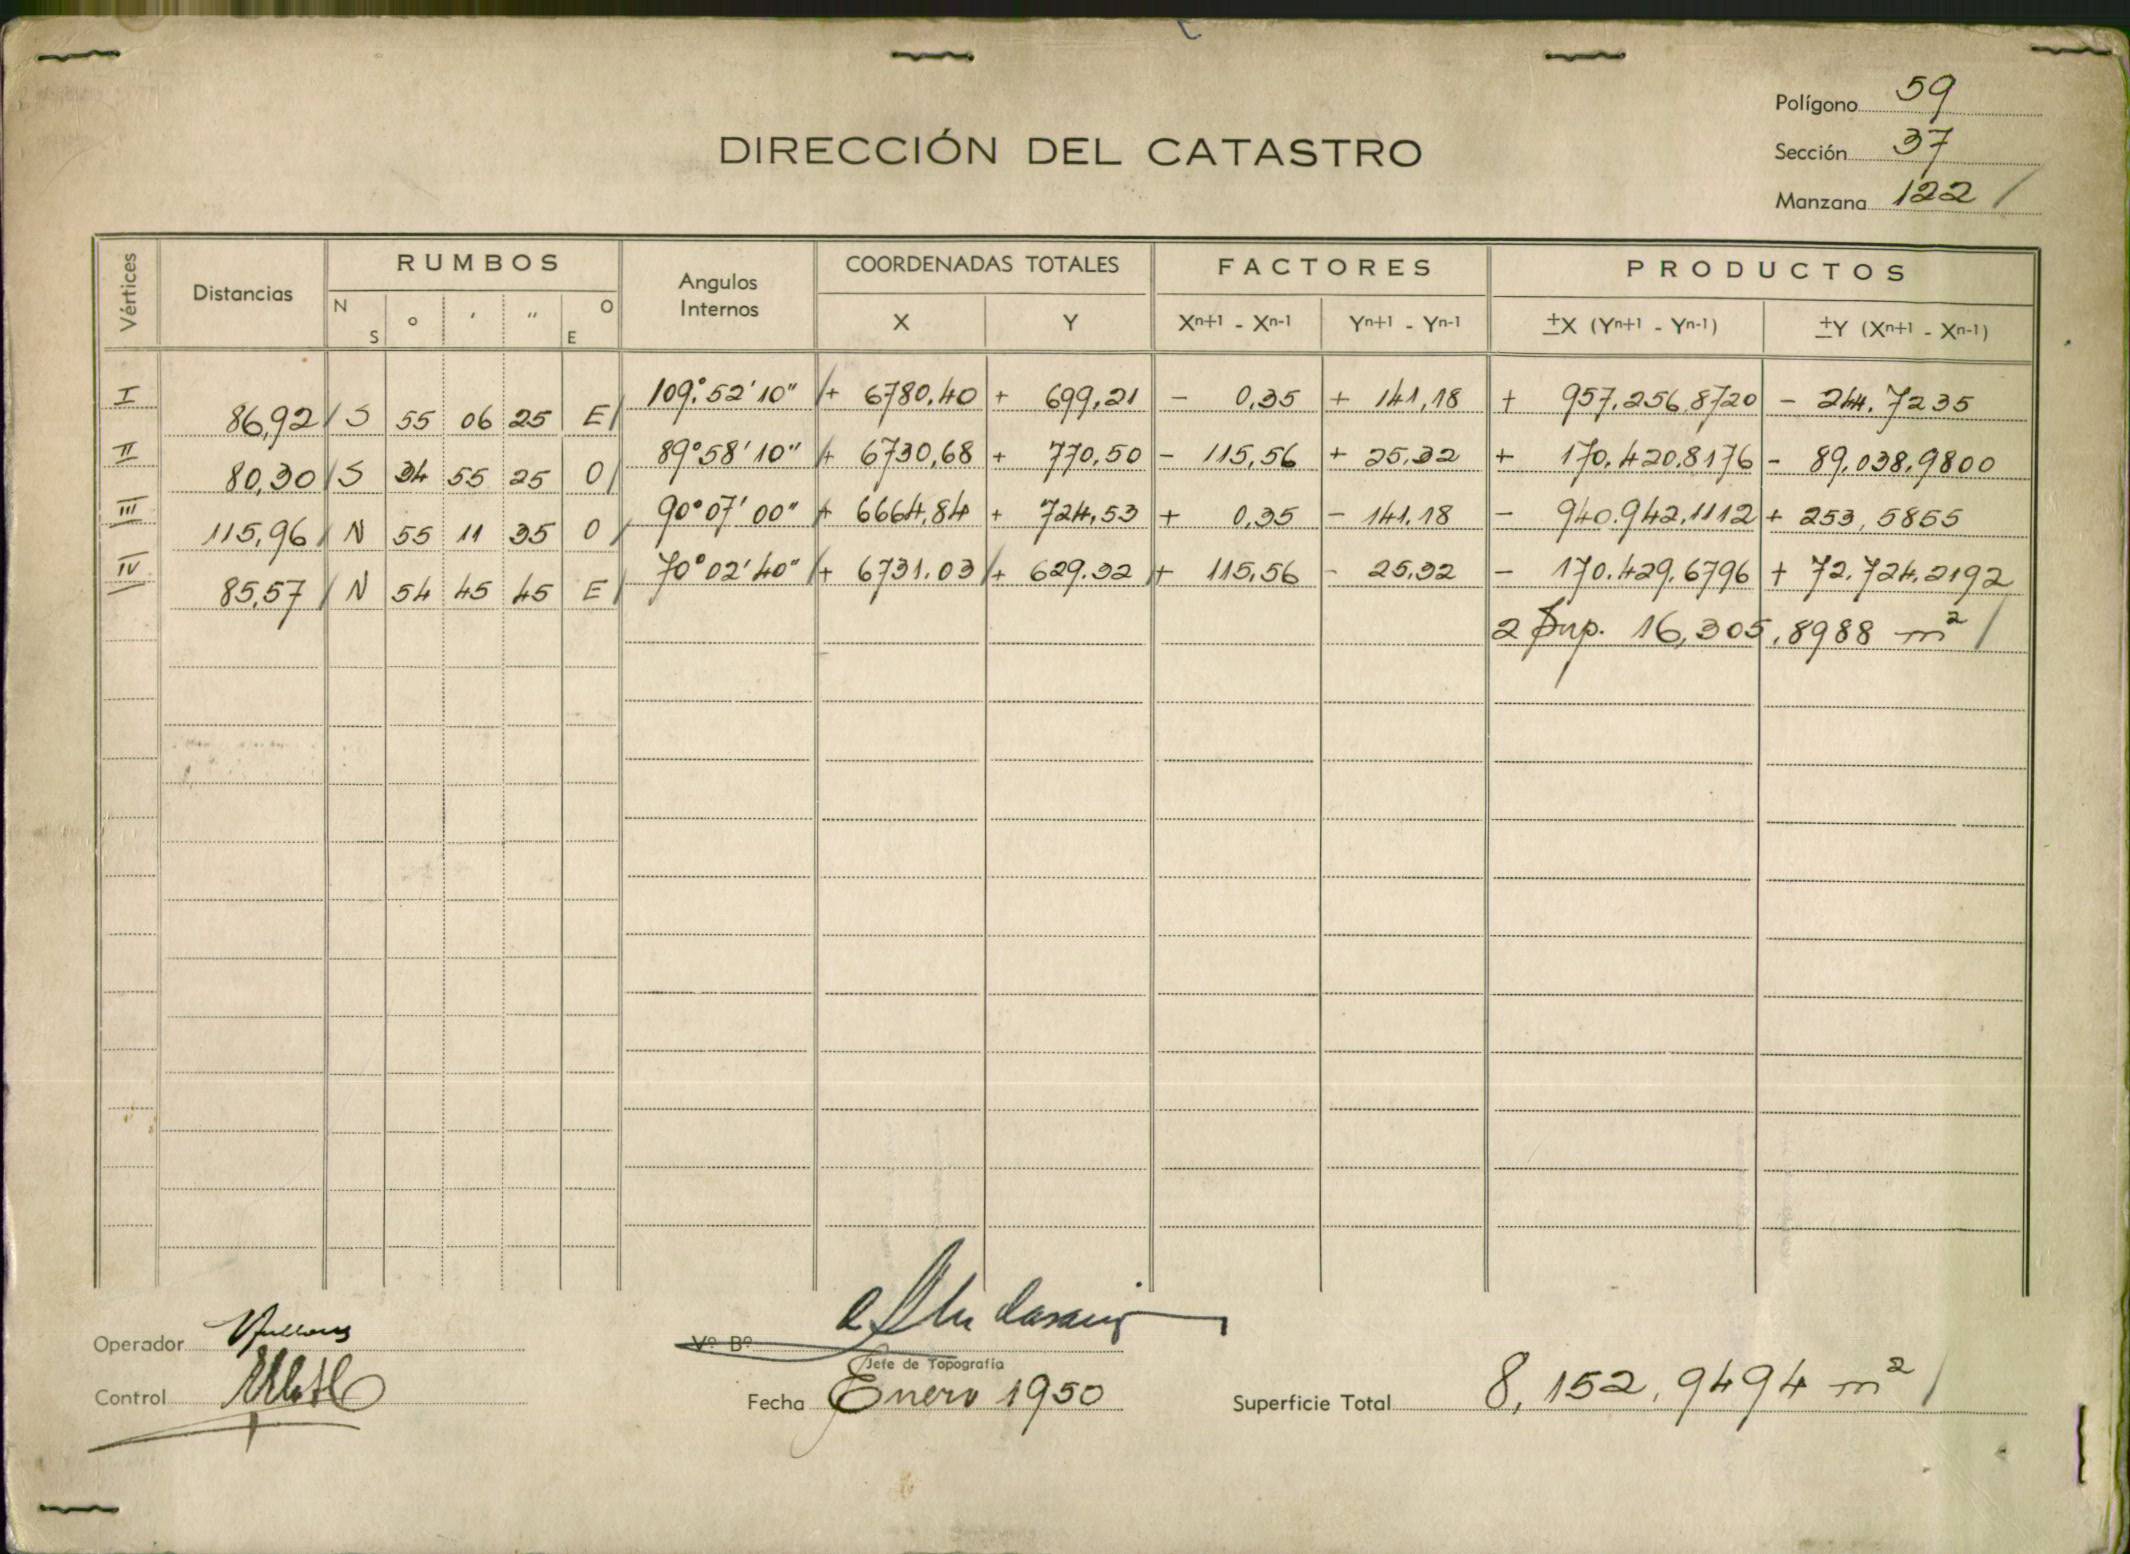 Polígono 59
DIRECCIÓN DEL CATASTRO
Sección 37
Manzana 122 /
Vértices Distancias RUMBOS Angulos Internos COORDENADAS TOTALES FACTORES PRODUCTOS
N S ° ′ ″ O E X Y Xn+1 - Xn-1 Yn+1 - Yn-1 ±X (Yn+1 - Yn-1) ±Y (Xn+1 - Xn-1)
I 109° 52' 10" /+ 6780,40 + 699,21 - 0,35 + 141,18 + 957.256,8720 - 244.7235
86,92 / S 55 06 25 E /
II 89° 58' 10" /+ 6730,68 + 770,50 - 115,56 + 25,32 + 170.420,8176 - 89.038,9800
80,30 / S 34 55 25 O /
III 90° 07' 00" /+ 6664,84 + 724,53 + 0,35 - 141,18 - 940.942,1112 + 253,5855
115,96 / N 55 11 35 O /
IV 70° 02' 40" /+ 6731.03 /+ 629.32 /+ 115,56 - 25,32 - 170.429,6796 + 72.724,2192
85,57 / N 54 45 45 E /
2 Sup. 16,305,8988 m² /
Operador
Vº Bº
Jefe de Topografía
Control
Fecha Enero 1950
Superficie Total 8,152,9494 m² /